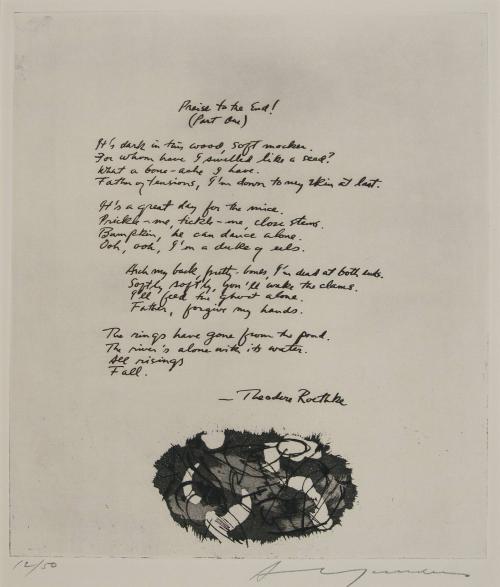 Praise to the End!
(Part One)
It's dark in this wood, soft mocker.
For whom have I swelled like a seed?
What a bone-ache I have.
Father of tensions, I'm down to my skin at last.
It's a great day for the mice.
Prickle-me, tickle-me, close stems.
Bumpkin, he can dance alone.
Ooh, ooh, I'm a duke of eels.
Arch my back, pretty-bones, I'm dead at both ends.
Softly softly, you'll wake the clams.
I'll feed the ghost alone.
Father, forgive my hands.
The rings have gone from the pond.
The river's alone with its water.
All risings
Fall.
— Theodore Roethke
12/50